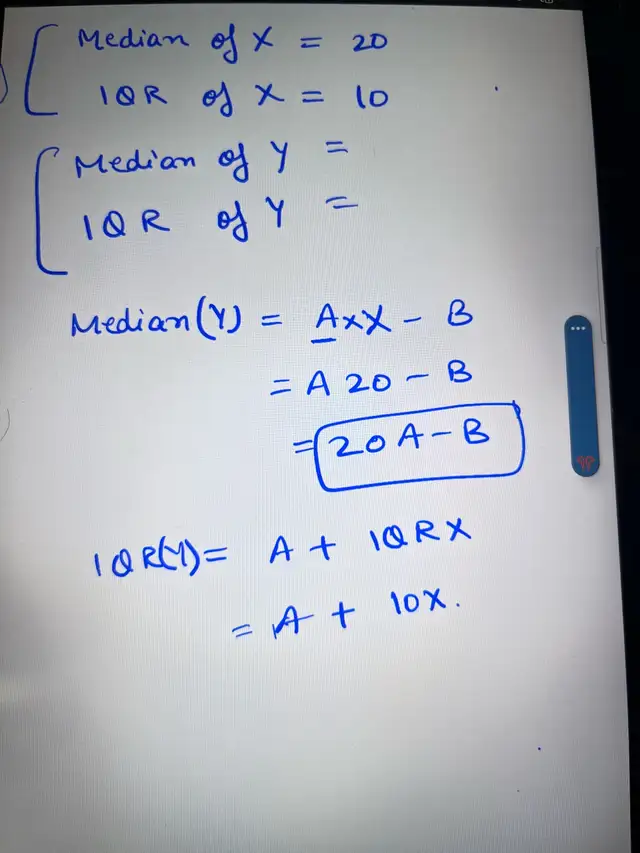 Median of X = 20
IQR of X = 10
Median of Y =
IQR of Y =
Median(Y) = AxX - B
= A 20 - B
= 20 A - B
IQR(Y) = A + IQRX
= A + 10X.